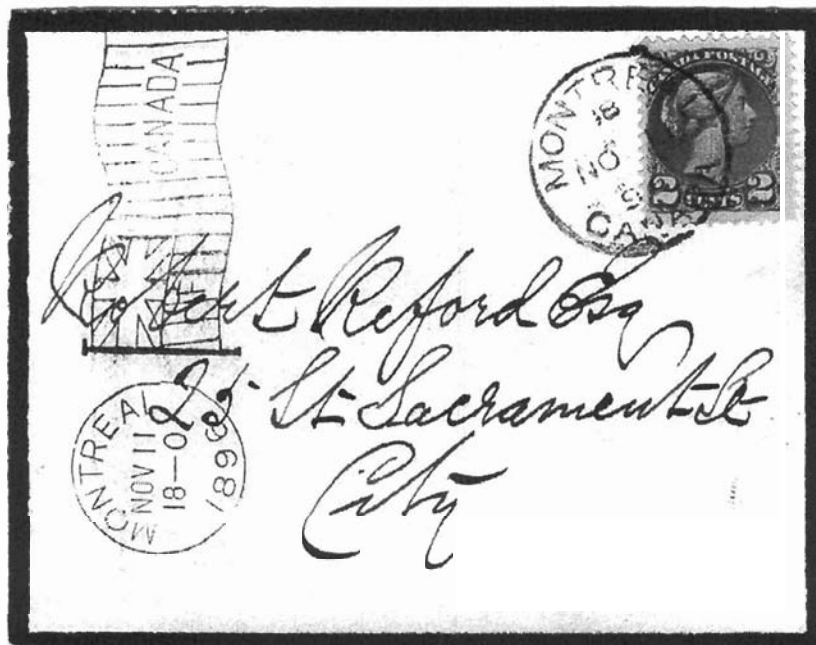 CANADA
MONTRE
18
NO
CANA
CANADA POSTAGE
2 CENTS 2
Robert Reford Esq
25 St Sacrament St
City
MONTREAL
NOV 11
18—0
189